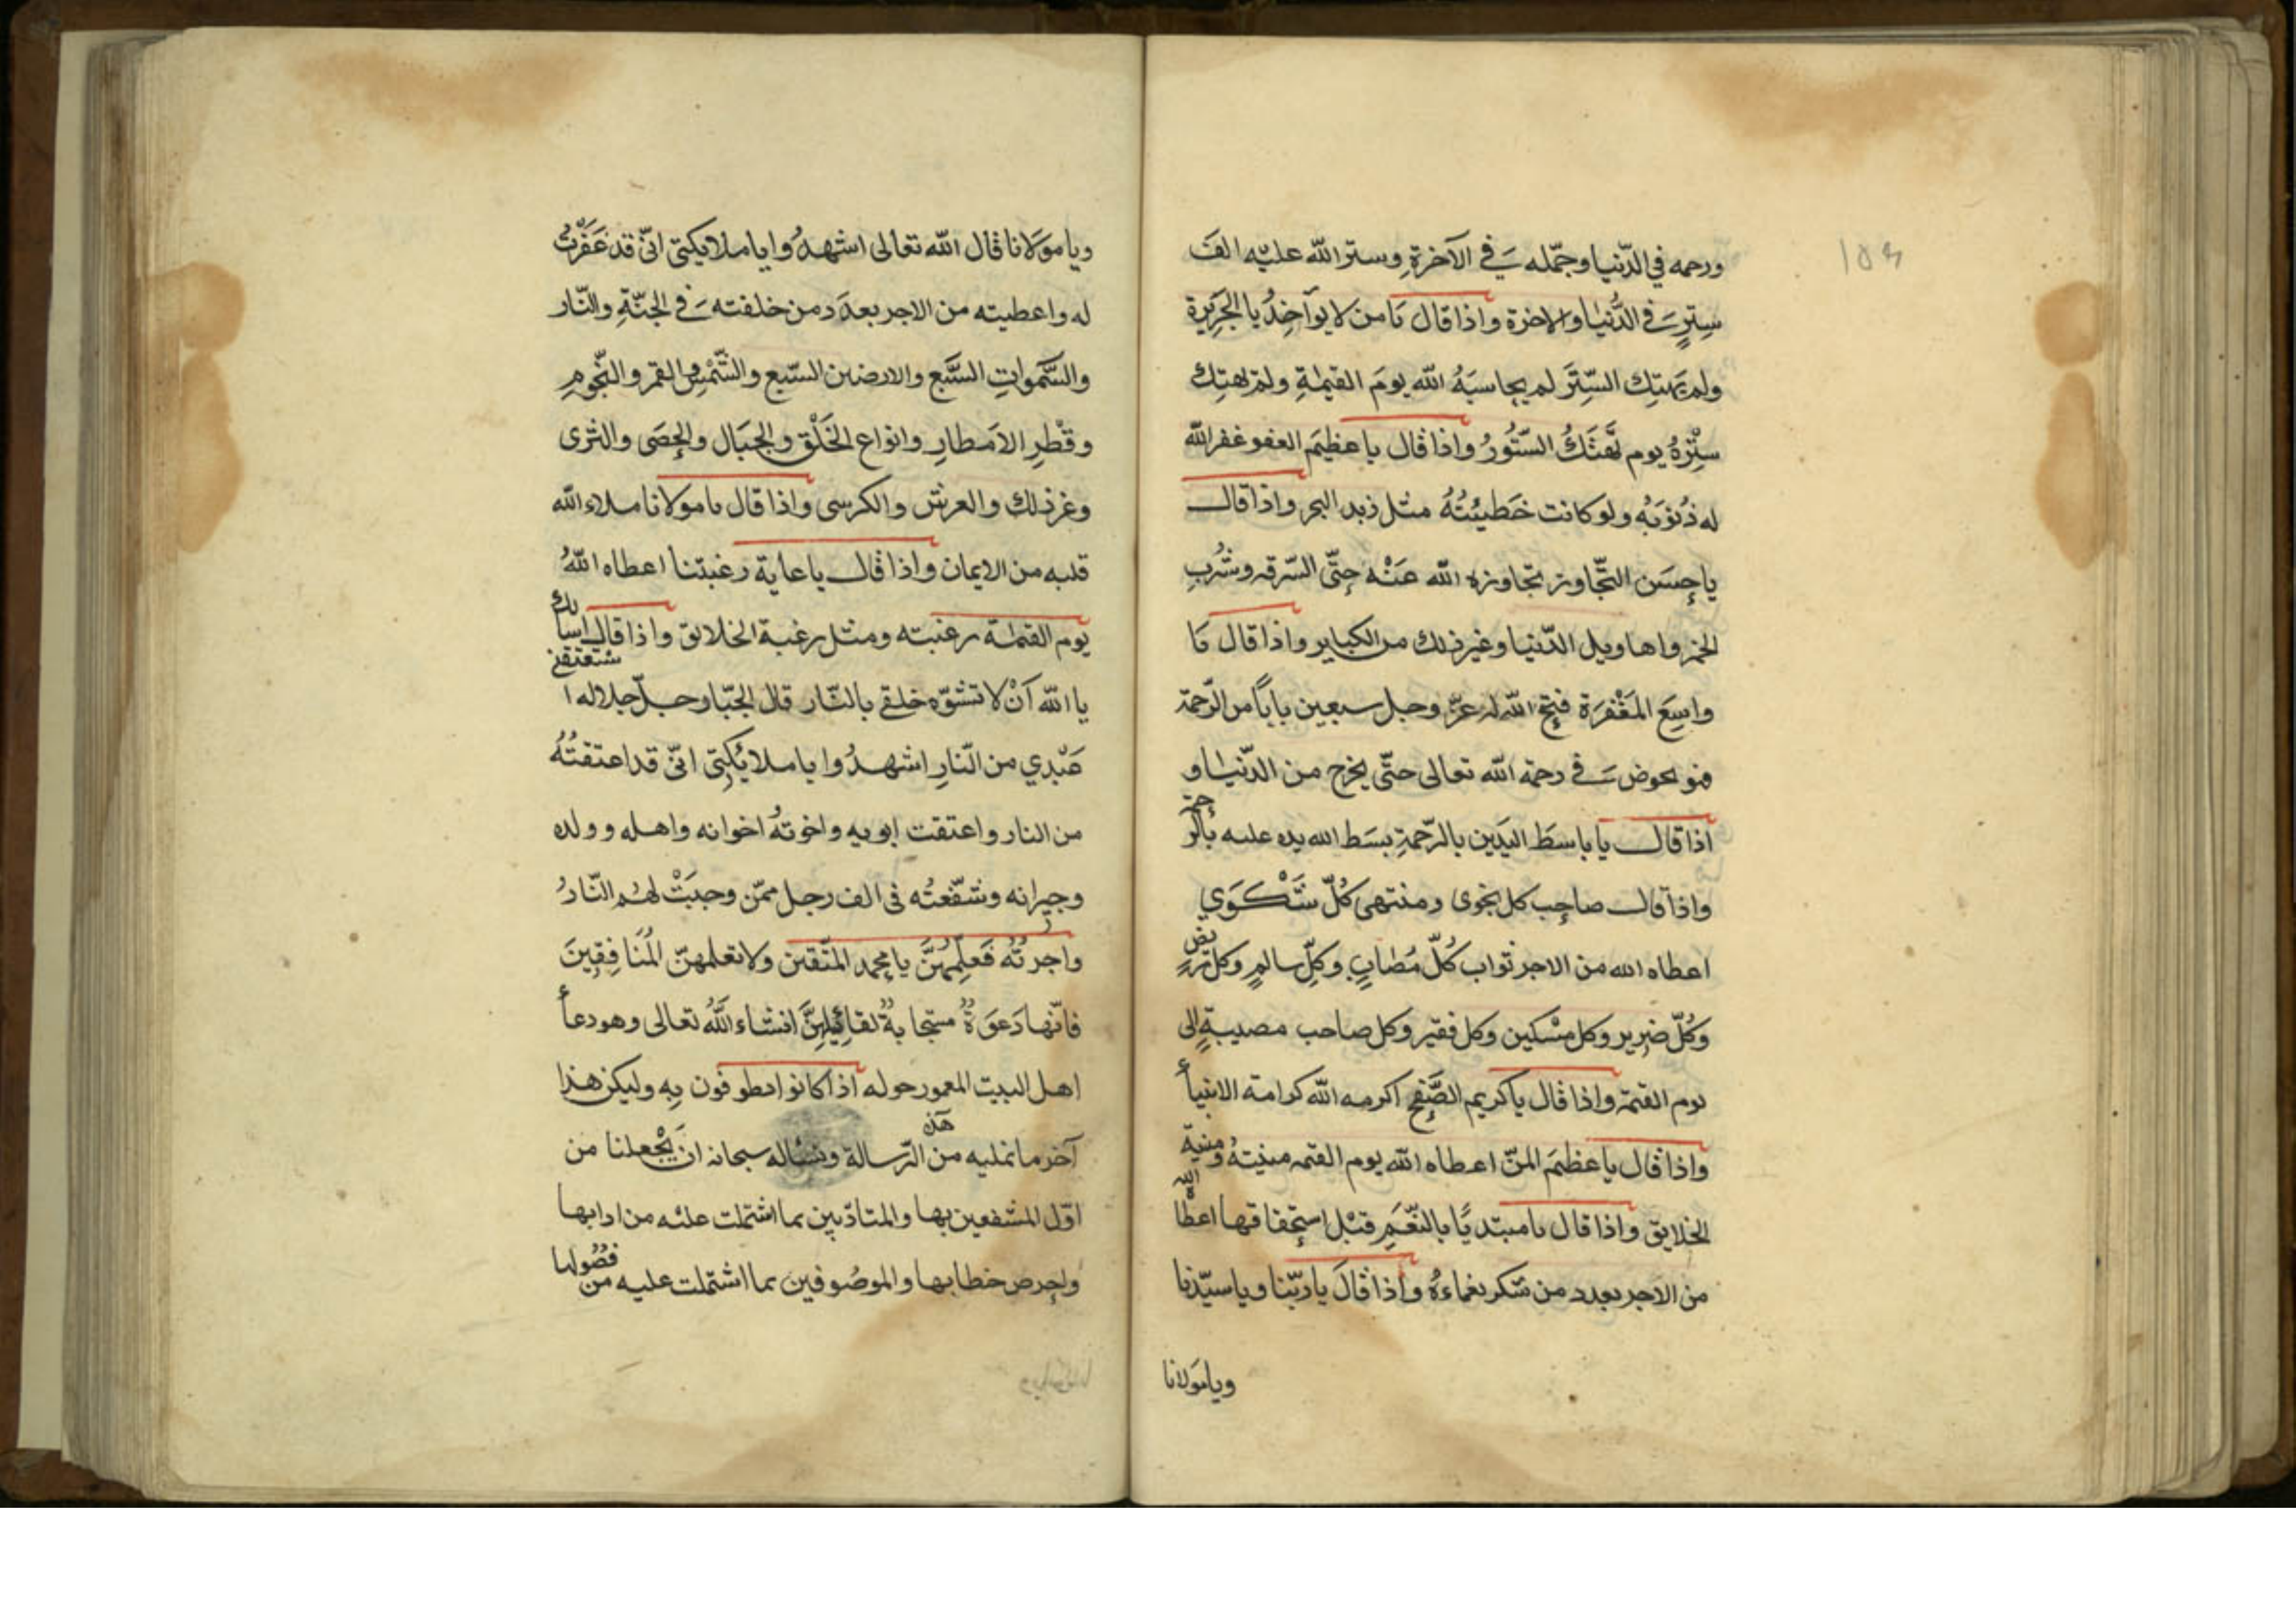 ورحمه في الدّنيا وجمّله في الآخرةِ وستر الله عليه الفَ
سِترٍ في الدُّنيا والاخرة واذا قال يَا من لا يوآخِذُ يا الجَرِيرة
ولم يَهتِك السّتِرَ لم يحاسبَهُ الله يومَ القيٰمةِ ولم يهتِك
سِتْرَهُ يوم تهتَكُ السّتُورُ واذا قال يا عظيَم العفو غفر الله
له ذُنوبَهُ ولو كانت خَطيئتُهُ مثل زبد البحر واذا قال
يا حِسَن التجّاوز تجاوزه الله عَنْه حتّى السّرقه وشُربِ
الخمر واهاويل الدّنيا وغير ذلك من الكباير واذا قال يَا
واسِعَ المَغْفرَة فتح الله له عزّ وجل سبعين باباً من الرّحمة
فهو يحوض في رحمة الله تعالى حتّى يخرج من الدّنيا و
اذا قال يا باسطَ اليَدين بالرّحمةِ بسَط الله يده عليه بالرّحمة
واذا قال صاحِب كل نجوى ومنتهى كُلّ شَكْوَي
اعطاه الله من الاجر ثواب كُلّ مُصابٍ وكلِّ سالمٍ وكل مريضٍ
وكُلّ ضرِير وكل مسْكين وكل فقير وكل صاحب مصيبةٍ إلى
يوم القيمة واذا قال يا كريم الصَّفِح اكرمه الله كرامة الانبياء
واذا قال يا عظيمَ المنّ اعطاه الله يوم القيمه منيتهُ ومنية
الخلايق واذا قال يا مبتديًا بالنّعَمِ قبْل استحقاقها اعطاه الله
من الاجر بعدد من شكر نعماءهُ واذا قالَ يا ربّنا ويا سيّدنا
ويا مَولانا
ويا مَوَلانا قال الله تعالى اشهدُوا يا ملايكتى انّى قد غَفَرْتُ
له واعطيته من الاجر بعدَد من خلفته في الجنّةِ والنّار
والسَّمواتِ السَّبع والارضين السّبع والشّمْسِ والقمر والنّجومِ
وقْطرِ الامَطارِ وانواع الخَلْق والجبَال والحصَى والثرى
وغر ذلك والعرش والكرسى واذا قال يا مولانا ملاء الله
قلبه من الايمان واذا قال يا غاية رغبتنا اعطاه اللهُ
يوم القيمٰة رغبته ومثل رغبة الخلايق واذا قال اسألك
يا الله آنْ لا تشوّه خلقي بالنّار قال الجبّار جلّ جلاله ا ستعتقني
عَبْدِي من النّارِ اشهدُوا يا ملائِكتِى انّى قد اعتقتُهُ
من النار واعتقت ابويه واخوتهُ اخوانه واهله وولده
وجيرانه وشفّعتُه في الف رجل ممّن وجبَتْ لهُم النّارُ
واجرتُهُ فَعلِّمهُنَّ يا محمد المتّقين ولا تعلمهنّ المُنَافِقِينَ
فانّها دَعوَةٌ مستجابةٌ لقائِلِهنَّ انشاء اللهُ تعالى وهو دعاء
اهل البيت المعمور حوله اذا كانوا يطوفون بِه وليكن هذا
آخر ما نمليه من هذه الرّسالة ونسٔاله سبحانه ان يَجْعلنا من
اوّل المشفعين بها والمتادّبين بما اشتملت عليْه من ادابها
والموصُوفين بما اشتملت عليه من فصُولها